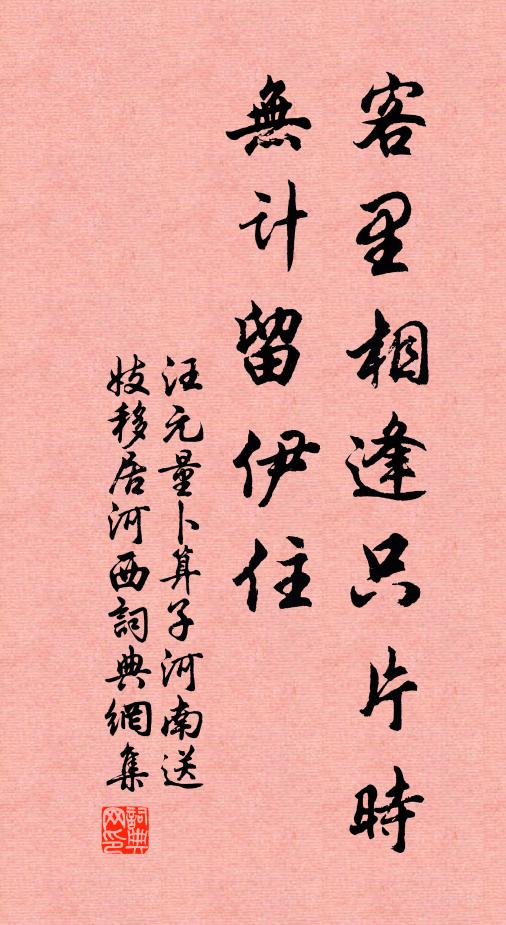 客里相逢只片時
無計留伊住
汪元量卜算子河南送
妓移居河西詞典網集
詞典
网印